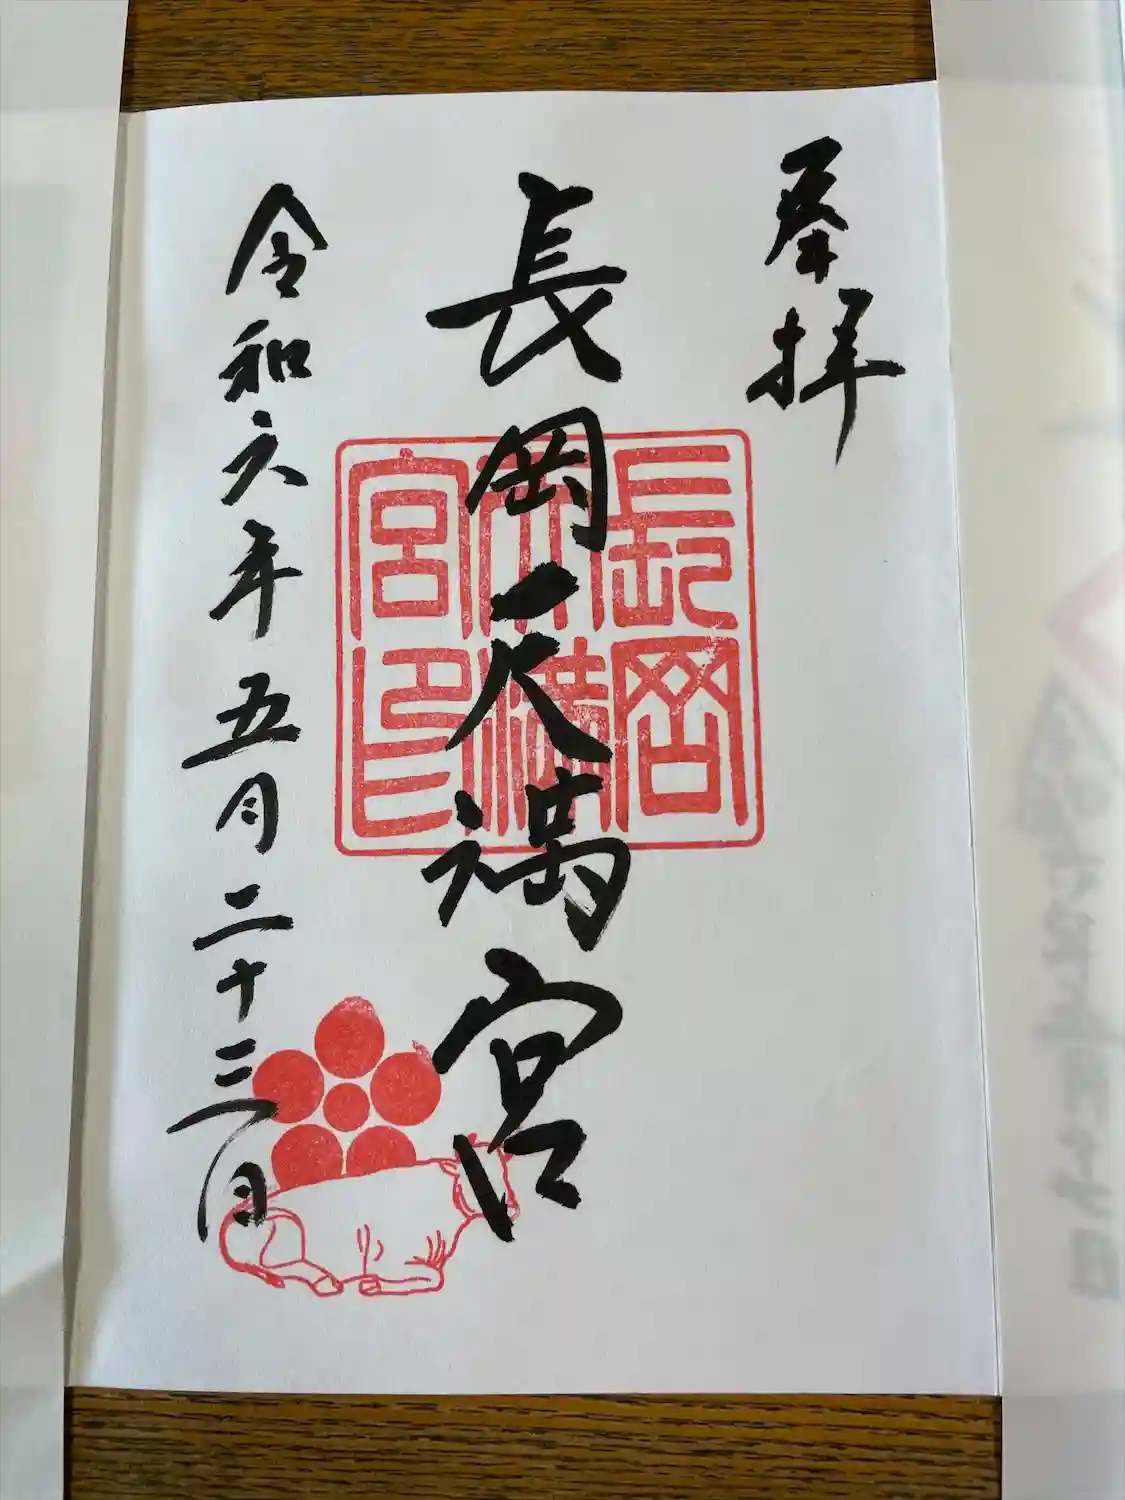 奉拝
長岡天満宮
長岡天満宮印
令和六年五月二十三日